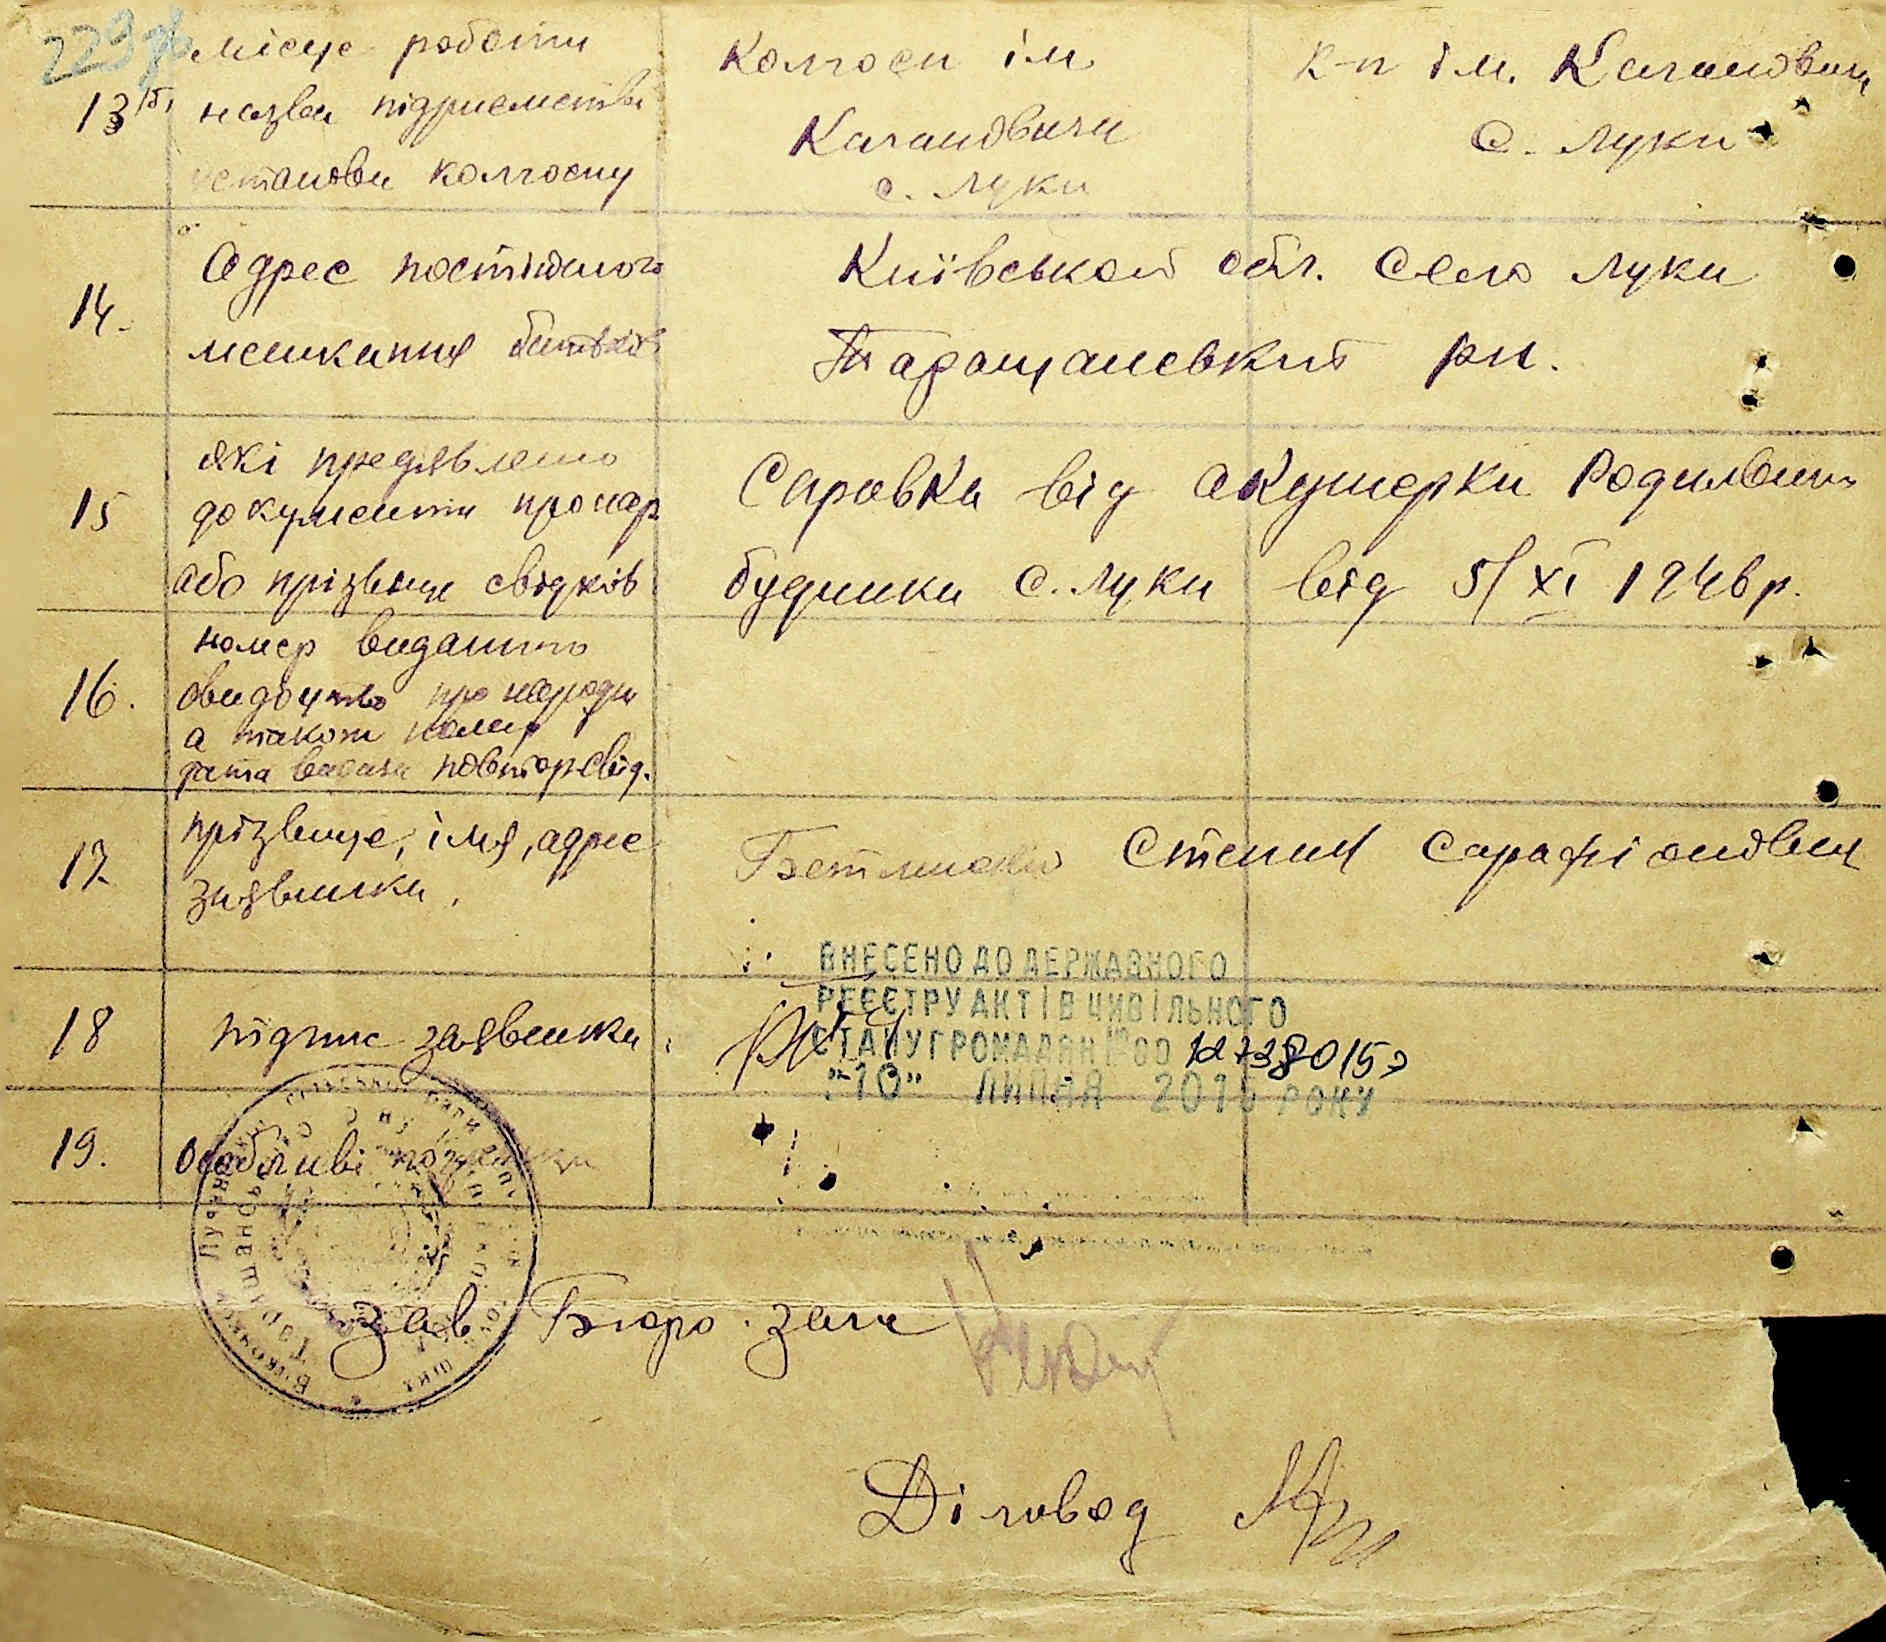 229 зв
місце роботи
13 б, назва підриємства
установи колгоспу
Колгосп ім
Кагановича
с. Луки
к-п ім. Кагановича
с. Луки
14. Адрес постійного
мешкання батьків
Київської обл. село Луки
Таращанський рн.
15 які предявлено
документи про нар
або прізвище свідків
Справка від акушерки Родильного
будинку с. Луки від 5/XI 1946 р.
16. номер виданого
свидоцтва про народж
а також номер
дата видачи повтор свід.
17. прізвище, імя, адрес
заявника.
Степан Сарафіонович
18 підпис заявника
ВНЕСЕНО ДО ДЕРЖАВНОГО
РЕЄСТРУ АКТІВ ЦИВІЛЬНОГО
СТАНУ ГРОМАДЯН
"10" ЛИПНЯ 2015 РОКУ
19. Особливі
Зав Бюро загс
Діловод